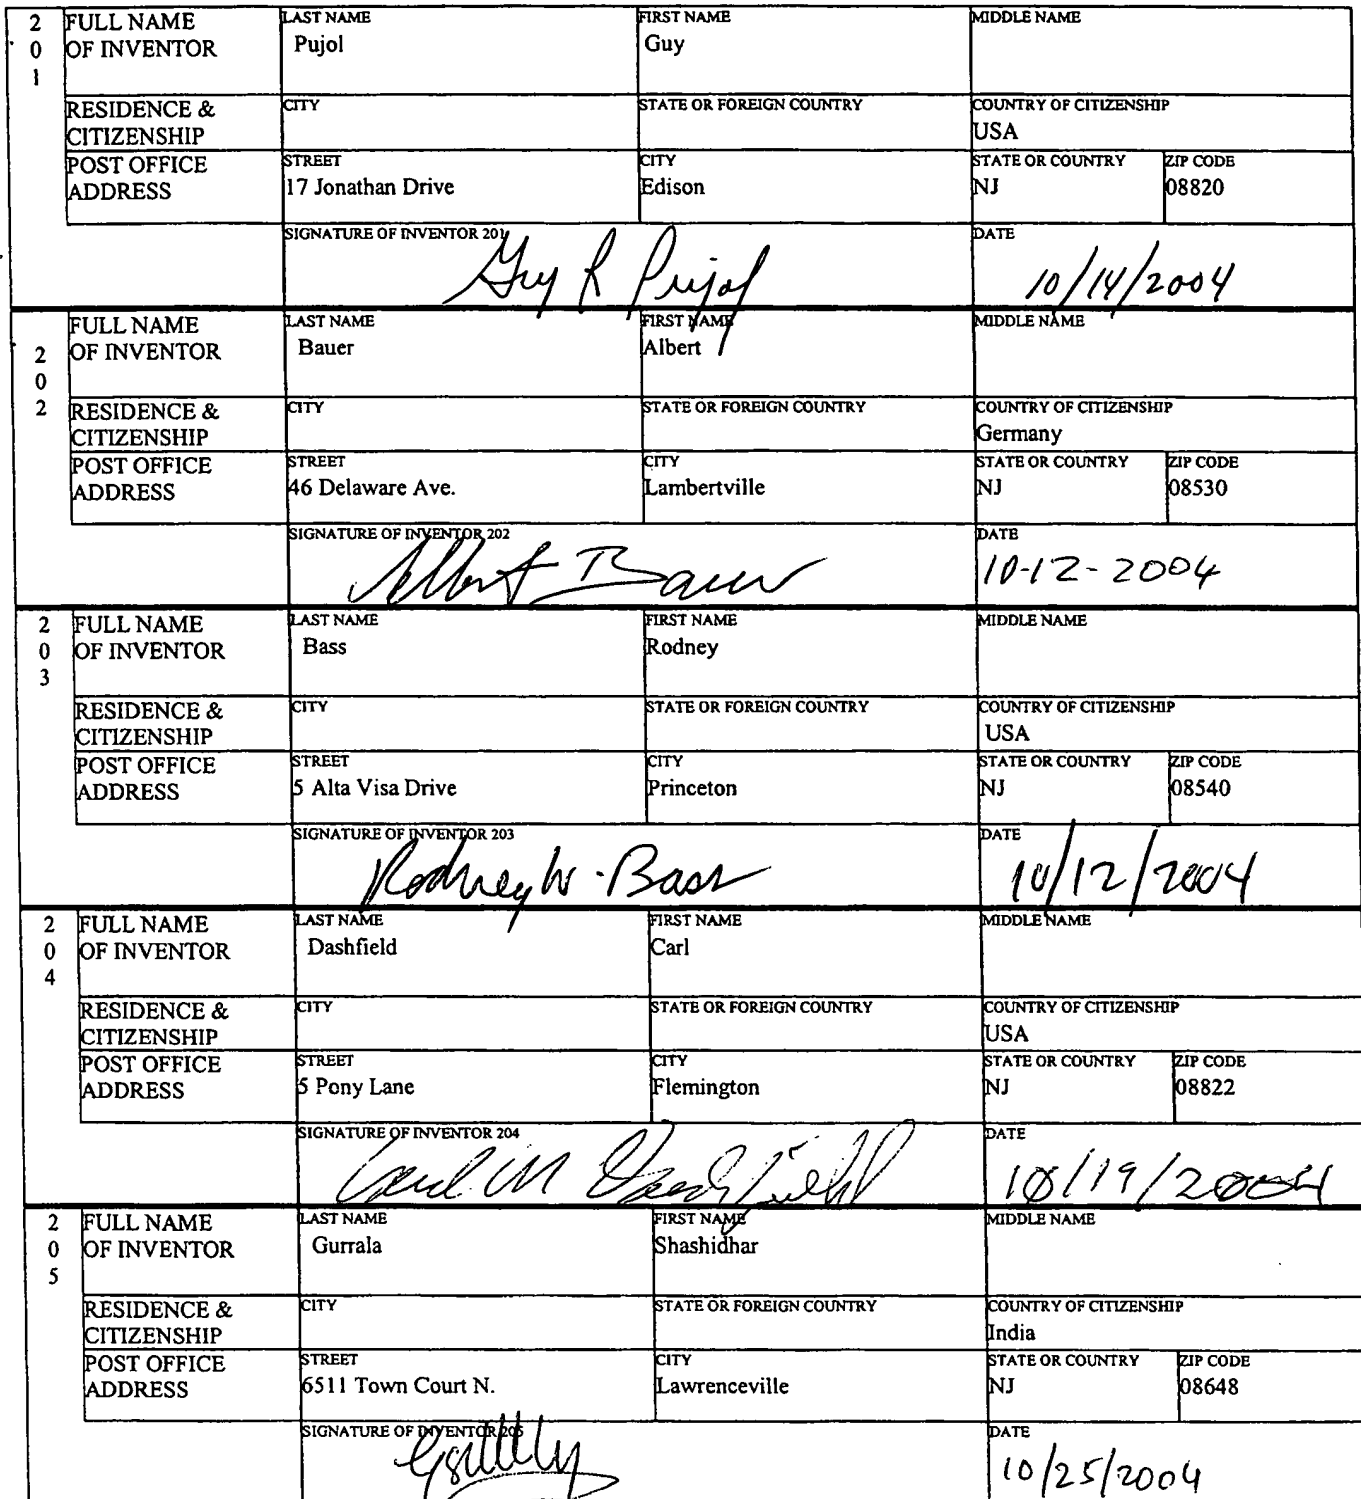 201 FULL NAME OF INVENTOR LAST NAME Pujol FIRST NAME Guy MIDDLE NAME
RESIDENCE & CITIZENSHIP CITY STATE OR FOREIGN COUNTRY COUNTRY OF CITIZENSHIP USA
POST OFFICE ADDRESS STREET 17 Jonathan Drive CITY Edison STATE OR COUNTRY NJ ZIP CODE 08820
SIGNATURE OF INVENTOR 201 Guy R Pujol DATE 10/14/2004
202 FULL NAME OF INVENTOR LAST NAME Bauer FIRST NAME Albert MIDDLE NAME
RESIDENCE & CITIZENSHIP CITY STATE OR FOREIGN COUNTRY COUNTRY OF CITIZENSHIP Germany
POST OFFICE ADDRESS STREET 46 Delaware Ave. CITY Lambertville STATE OR COUNTRY NJ ZIP CODE 08530
SIGNATURE OF INVENTOR 202 Albert Bauer DATE 10-12-2004
203 FULL NAME OF INVENTOR LAST NAME Bass FIRST NAME Rodney MIDDLE NAME
RESIDENCE & CITIZENSHIP CITY STATE OR FOREIGN COUNTRY COUNTRY OF CITIZENSHIP USA
POST OFFICE ADDRESS STREET 5 Alta Visa Drive CITY Princeton STATE OR COUNTRY NJ ZIP CODE 08540
SIGNATURE OF INVENTOR 203 Rodney W. Bass DATE 10/12/2004
204 FULL NAME OF INVENTOR LAST NAME Dashfield FIRST NAME Carl MIDDLE NAME
RESIDENCE & CITIZENSHIP CITY STATE OR FOREIGN COUNTRY COUNTRY OF CITIZENSHIP USA
POST OFFICE ADDRESS STREET 5 Pony Lane CITY Flemington STATE OR COUNTRY NJ ZIP CODE 08822
SIGNATURE OF INVENTOR 204 Carl M Dashfield DATE 10/19/2004
205 FULL NAME OF INVENTOR LAST NAME Gurrala FIRST NAME Shashidhar MIDDLE NAME
RESIDENCE & CITIZENSHIP CITY STATE OR FOREIGN COUNTRY COUNTRY OF CITIZENSHIP India
POST OFFICE ADDRESS STREET 6511 Town Court N. CITY Lawrenceville STATE OR COUNTRY NJ ZIP CODE 08648
SIGNATURE OF INVENTOR 205 DATE 10/25/2004